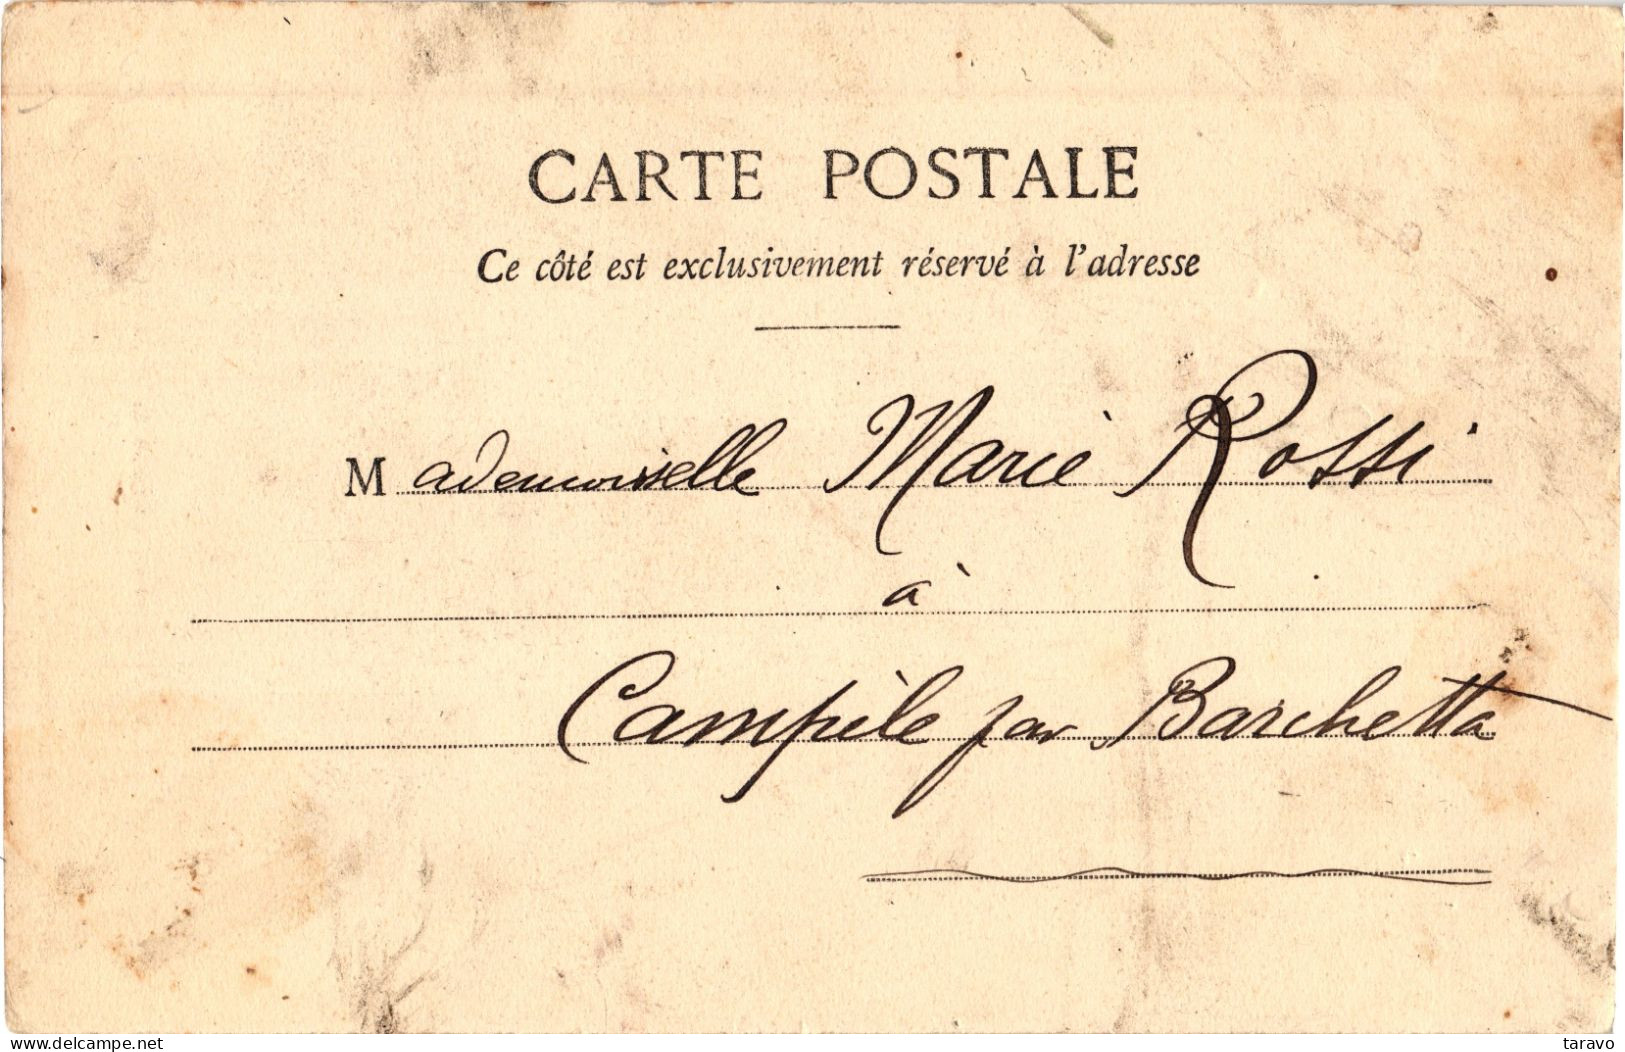 CARTE POSTALE
Ce côté est exclusivement réservé à l'adresse
Mademoiselle Marie Rossi
à
Campile par Barchetta
www.delcampe.net
taravo